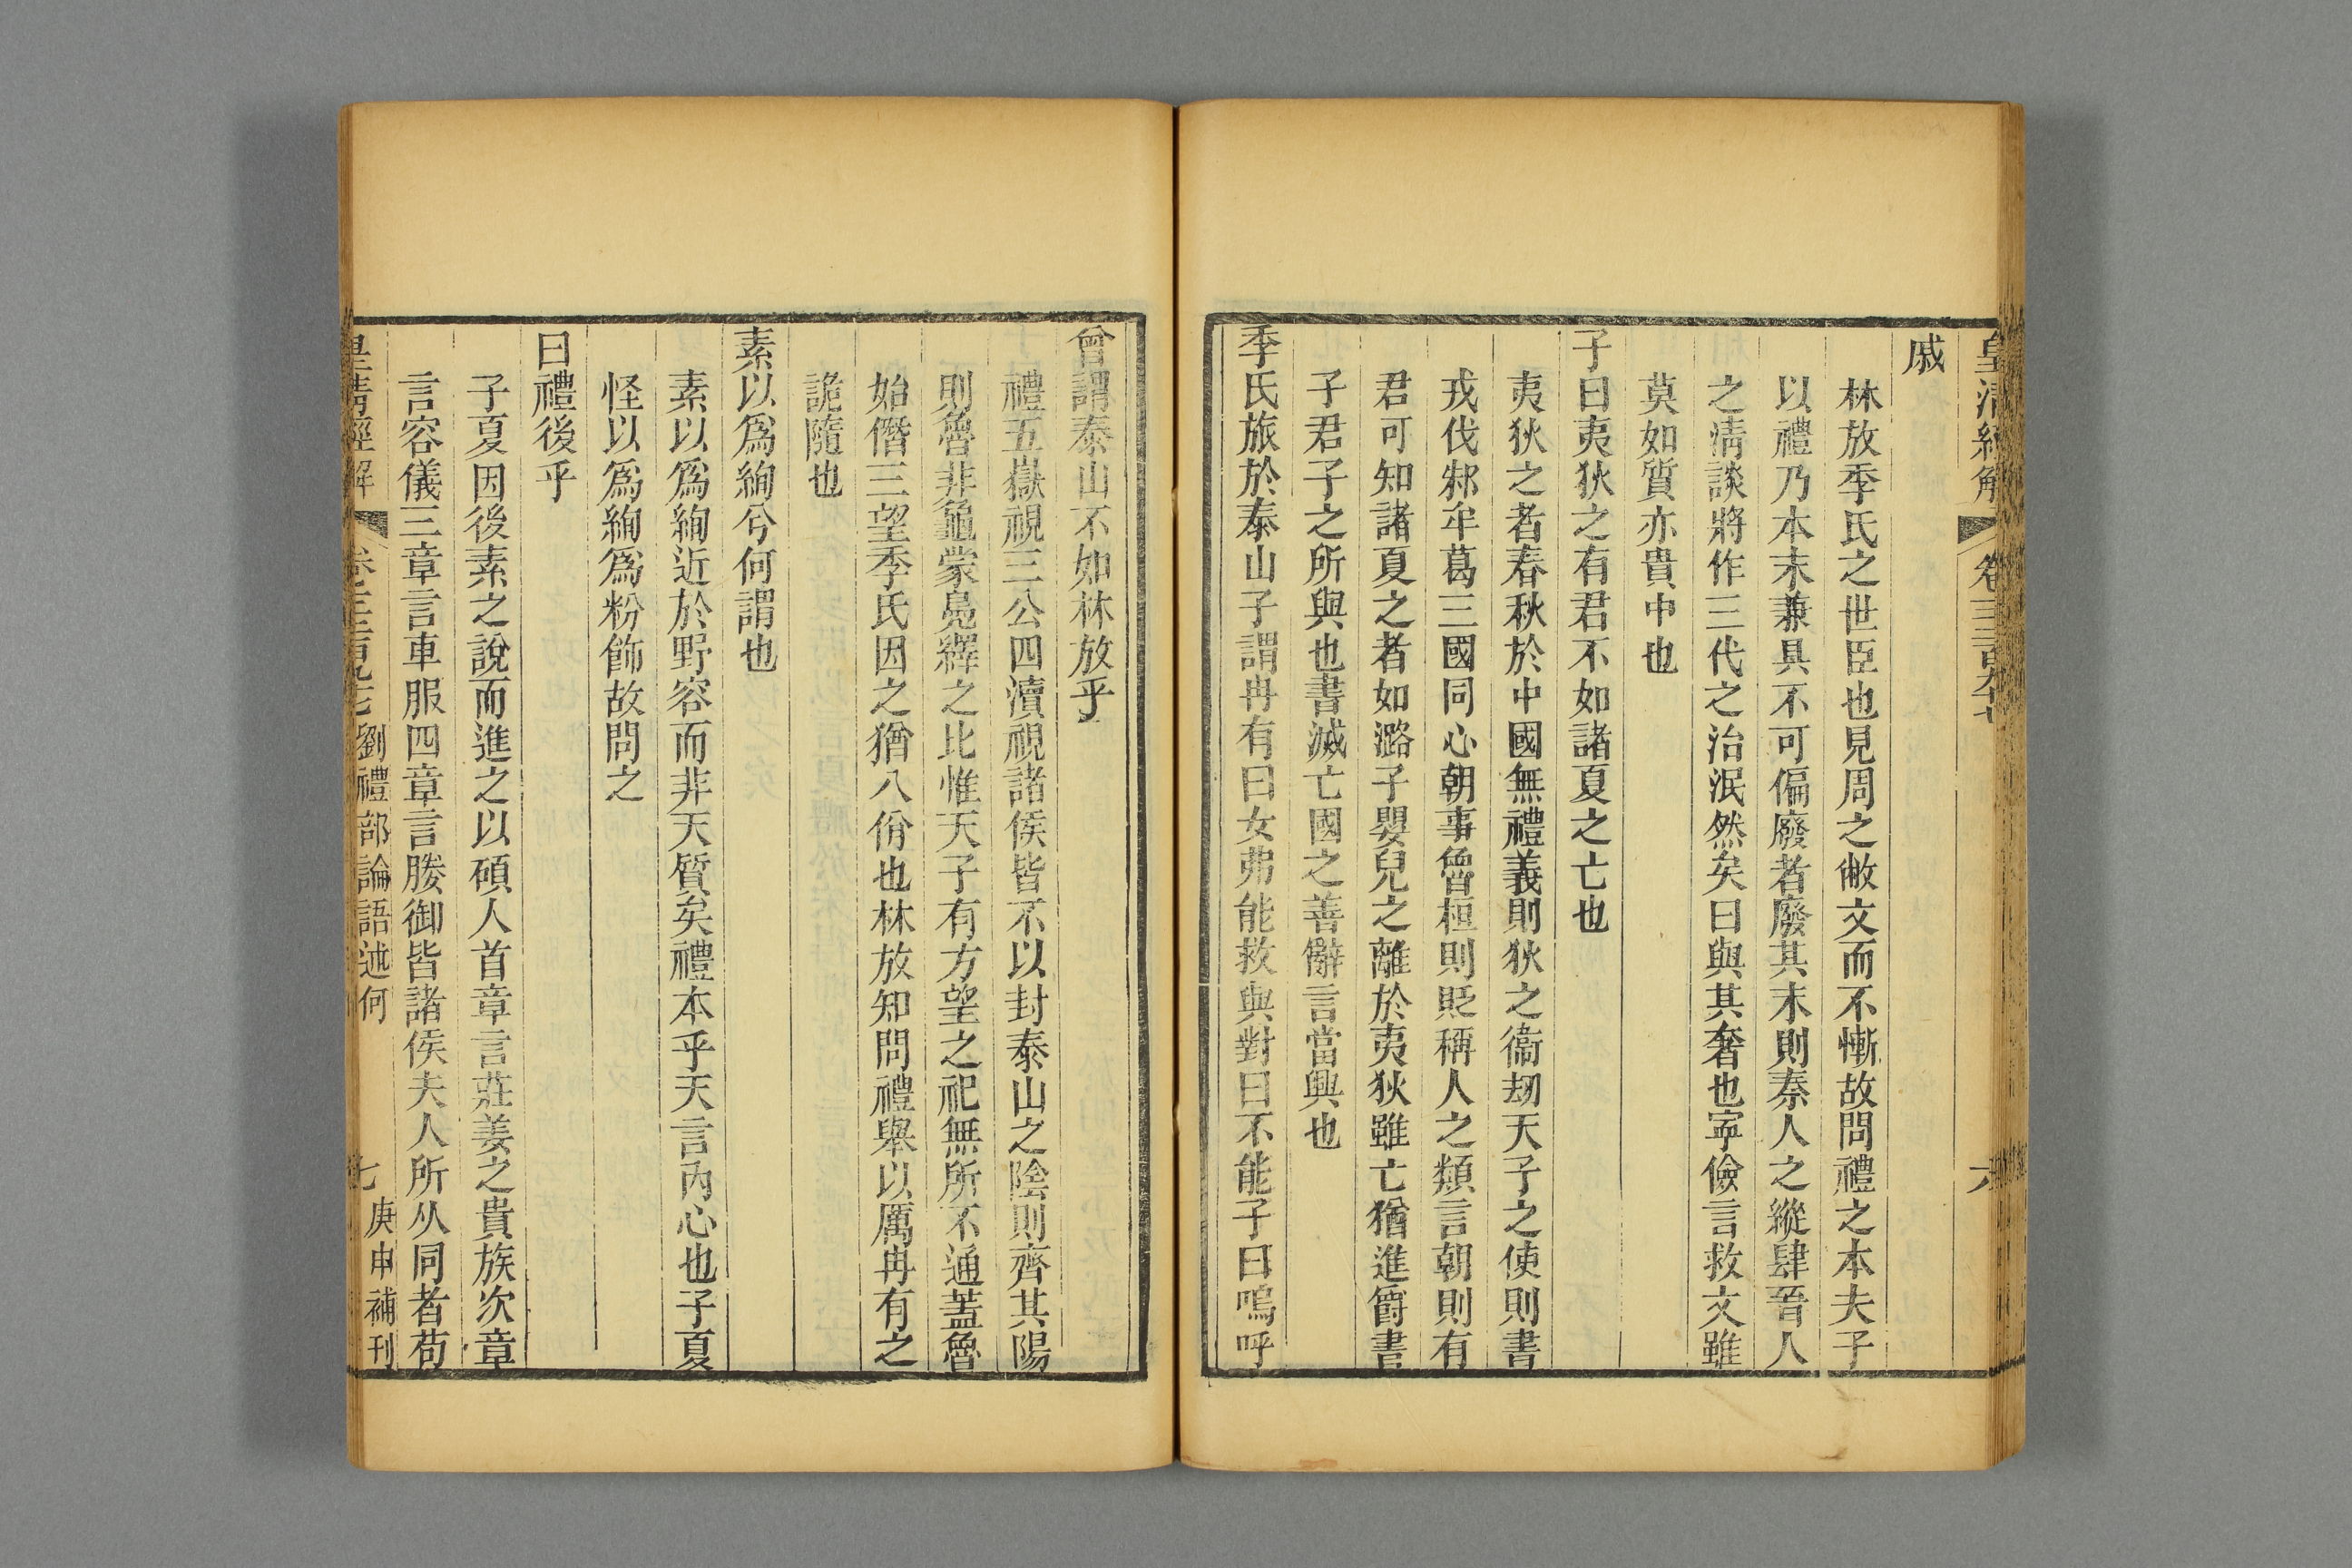 皇清經解
卷千二百九十七
六
戚
林放季氏之世臣也見周之敝文而不慚故問禮之本夫子
以禮乃本末兼具不可偏廢者廢其末則秦人之縱肆晉人
之淸談將作三代之治泯然矣曰與其奢也寜儉言救文雖
莫如質亦貴中也
子曰夷狄之有君不如諸夏之亡也
夷狄之者春秋於中國無禮義則狄之衞刼天子之使則書
戎伐邾牟葛三國同心朝事魯桓則貶稱人之類言朝則有
君可知諸夏之者如潞子嬰兒之離於夷狄雖亡猶進爵書
子君子之所與也書滅亡國之善辭言當興也
季氏旅於泰山子謂冉有曰女弗能救與對曰不能子曰嗚呼
曾謂泰山不如林放乎
禮五嶽視三公四瀆視諸侯皆不以封泰山之陰則齊其陽
則魯非龜蒙鳧繹之比惟天子有方望之祀無所不通葢魯
始僭三望季氏因之猶八佾也林放知問禮舉以厲冉有之
詭隨也
素以爲絢兮何謂也
素以爲絢近於野容而非天質矣禮本乎天言內心也子夏
怪以爲絢爲粉飾故問之
曰禮後乎
子夏因後素之說而進之以碩人首章言莊姜之貴族次章
言容儀三章言車服四章言媵御皆諸侯夫人所从同者苟
皇淸經解
劉禮部論語述何
七
庚申補刊